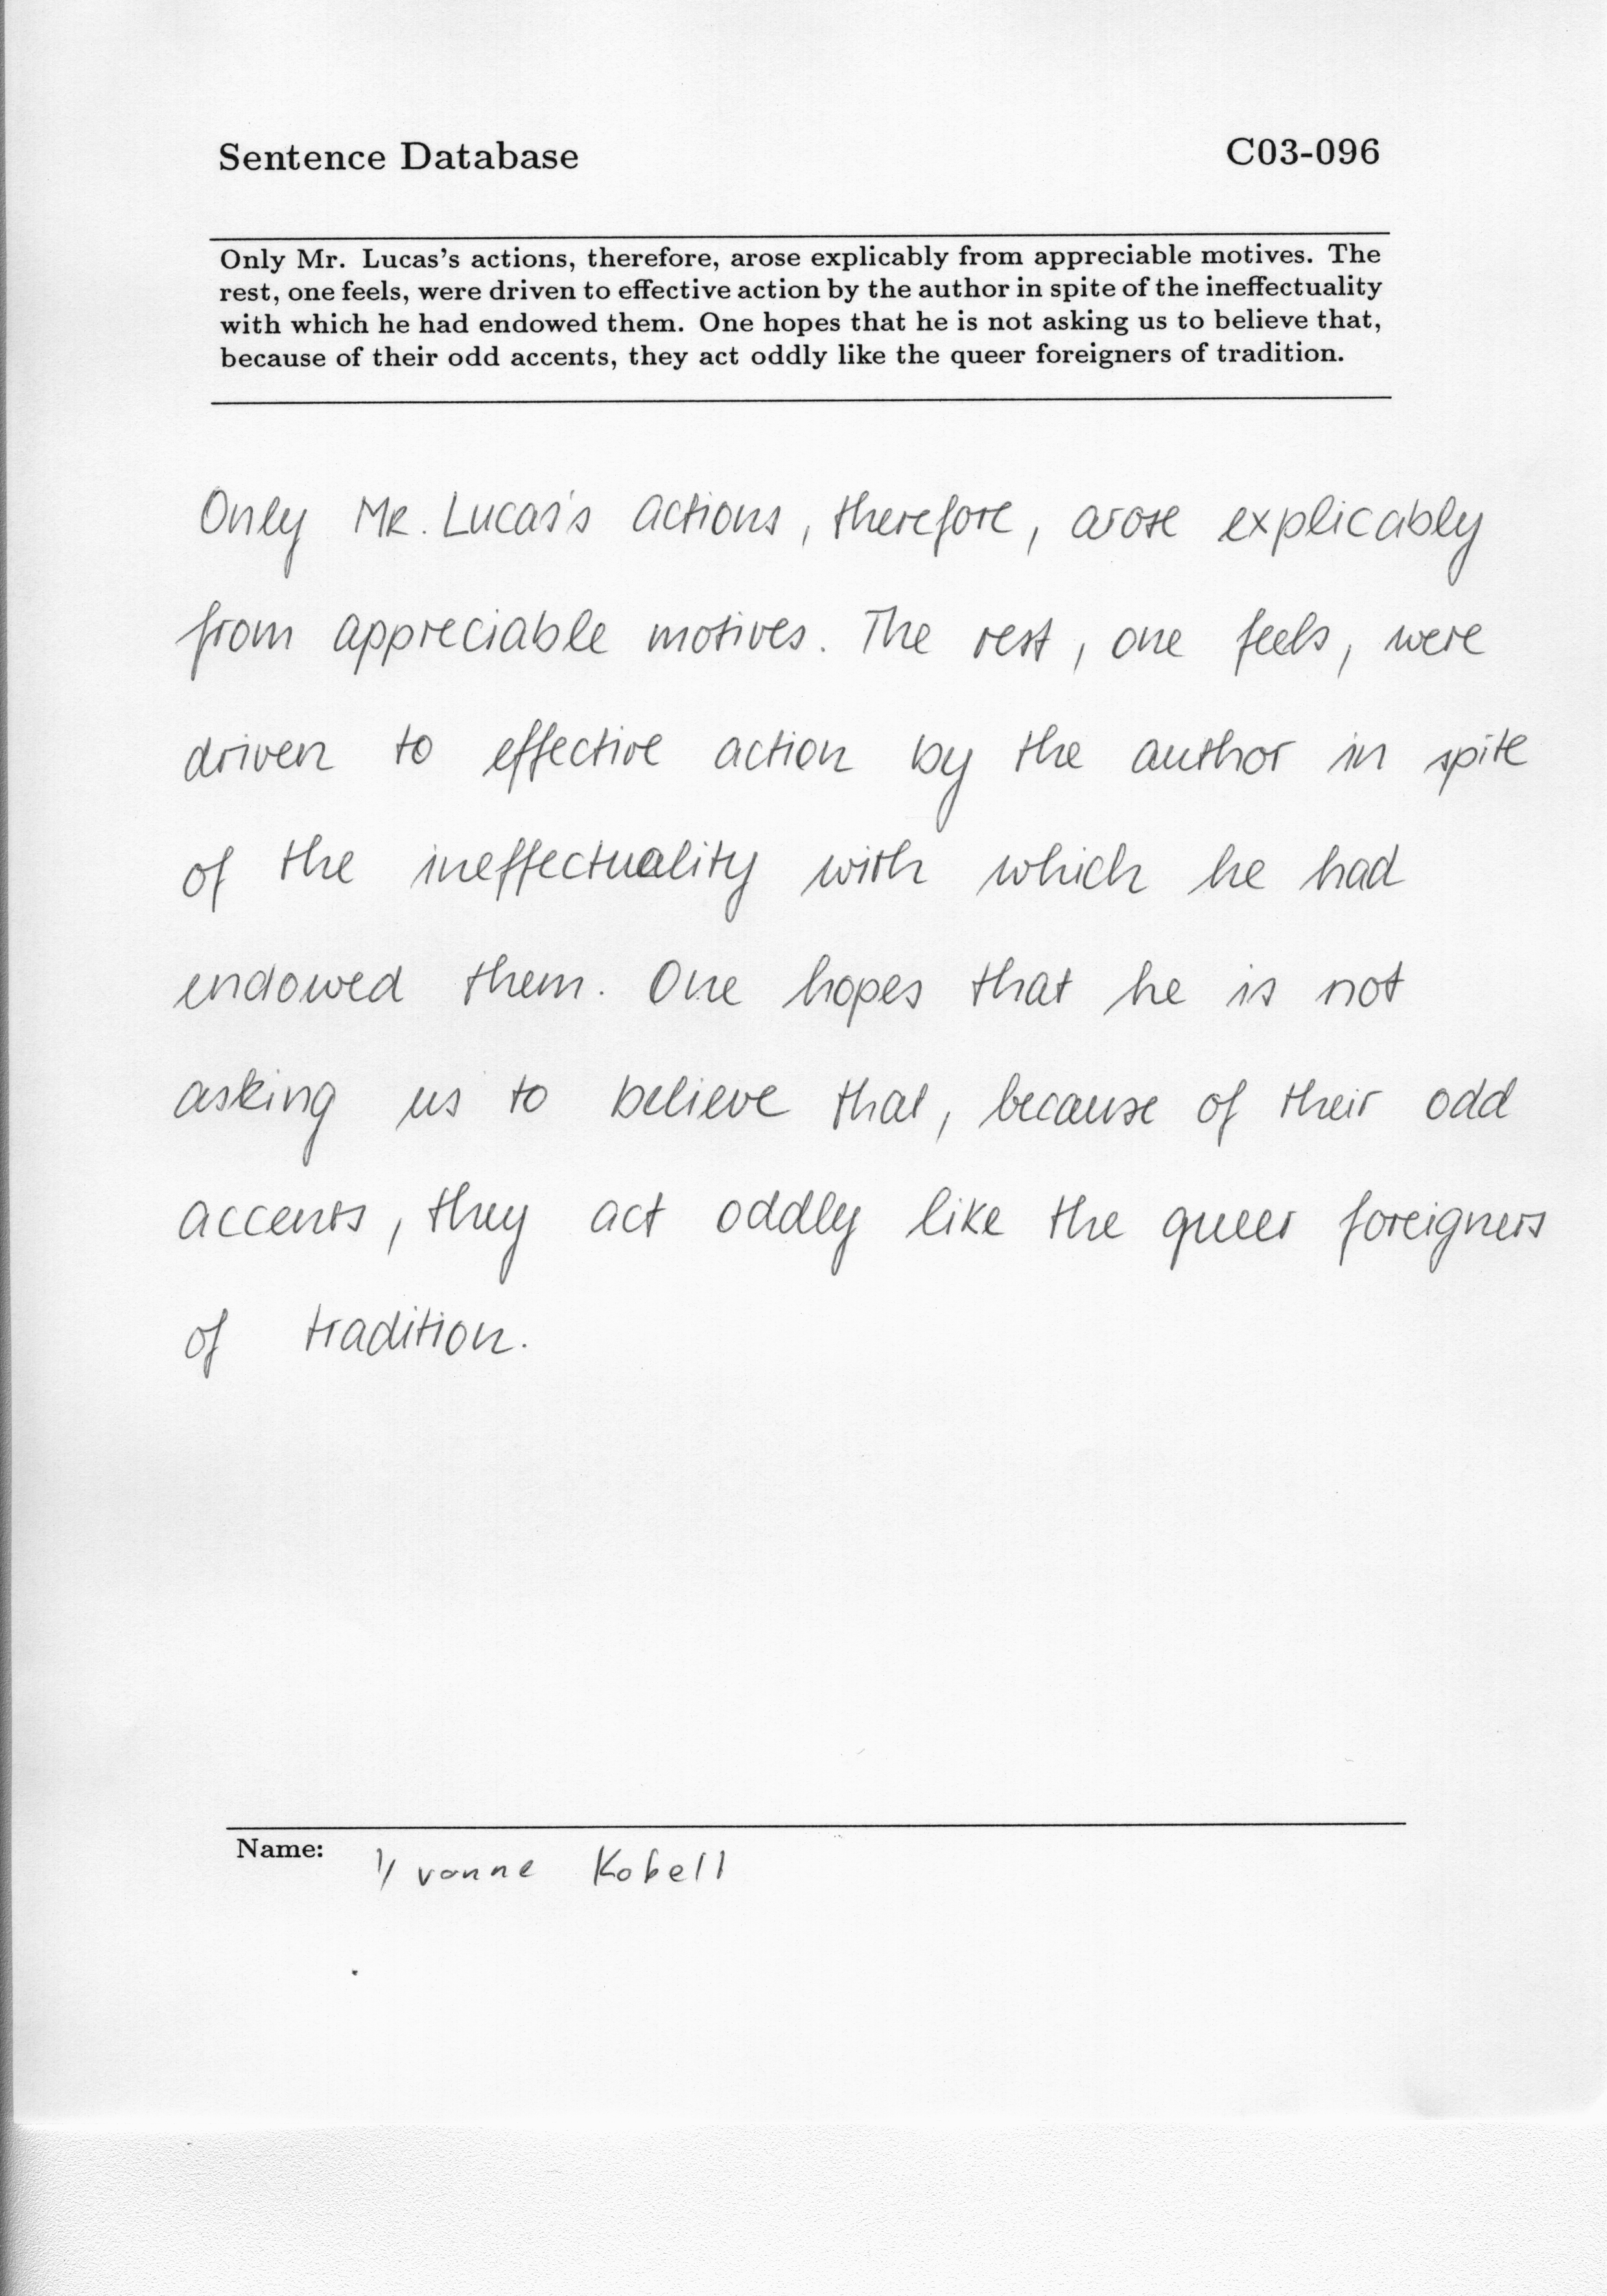 Sentence Database C03-096
Only Mr. Lucas's actions, therefore, arose explicably from appreciable motives. The
rest, one feels, were driven to effective action by the author in spite of the ineffectuality
with which he had endowed them. One hopes that he is not asking us to believe that,
because of their odd accents, they act oddly like the queer foreigners of tradition.
Only Mr. Lucas's actions, therefore, arose explicably
from appreciable motives. The rest, one feels, were
driven to effective action by the author in spite
of the ineffectuality with which he had
endowed them. One hopes that he is not
asking us to believe that, because of their odd
accents, they act oddly like the queer foreigners
of tradition.
Name: Yvonne Kobell